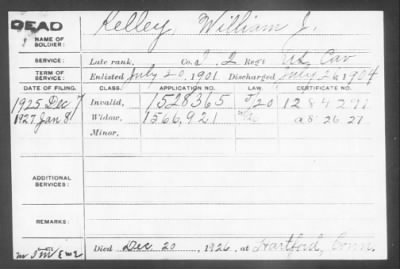 DEAD
Kelley, William J.
NAME OF SOLDIER:
SERVICE: Late rank, Co. I, 2 Reg't U.S. Cav
TERM OF SERVICE: Enlisted July 20, 1901 Discharged July 26, 1904
DATE OF FILING. CLASS. APPLICATION NO. LAW. CERTIFICATE NO.
1925 Dec 7 Invalid, 1528365 1284291
1927 Jan 8 Widow, 1566,921 a8-26-27
Minor,
ADDITIONAL SERVICES:
REMARKS:
Died Dec. 20, 1926, at Hartford, Conn.